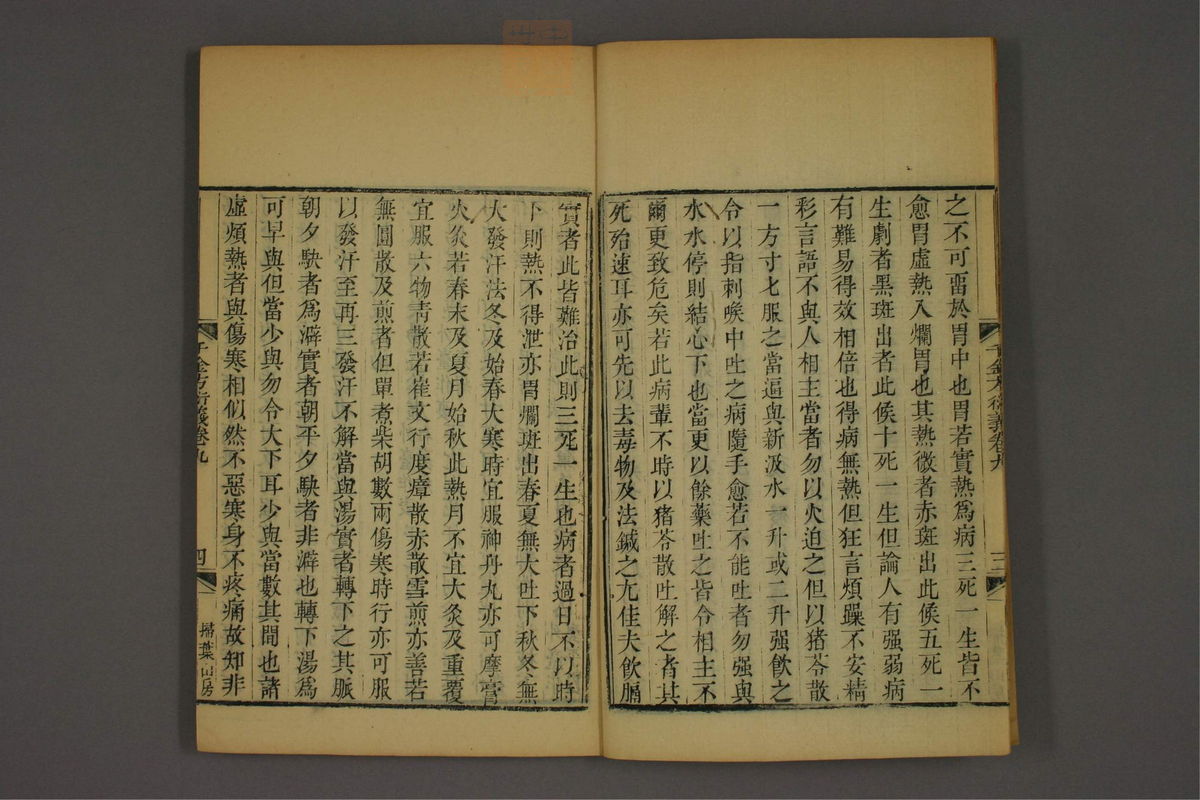 之不可畱於胃中也胃若實熱爲病三死一生皆不
愈胃虛熱入爛胃也其熱微者赤斑出此候五死一
生劇者黑斑出者此候十死一生但論人有强弱病
有難易得效相倍也得病無熱但狂言煩躁不安精
彩言語不與人相主當者勿以火迫之但以猪苓散
一方寸七服之當逼與新汲水一升或二升强飮之
令以指刺喉中吐之病隨手愈若不能吐者勿强與
水水停則結心下也當更以餘藥吐之皆令相主不
爾更致危矣若此病輩不時以猪苓散吐解之者其
死殆速耳亦可先以去毒物及法鍼之尤佳夫飮膈
千金方衍義卷九
三
實者此皆難治此則三死一生也病者過日不以時
下則熱不得泄亦胃爛斑出春夏無大吐下秋冬無
大發汗法冬及始春大寒時宜服神丹丸亦可摩膏
火灸若春末及夏月始秋此熱月不宜大灸及重覆
宜服六物靑散若崔文行度瘴散赤散雪煎亦善若
無圓散及煎者但單煮柴胡數兩傷寒時行亦可服
以發汗至再三發汗不解當與湯實者轉下之其脈
朝夕駃者爲澼實者朝平夕駃者非澼也轉下湯爲
可早與但當少與勿令大下耳少與當數其間也諸
虛煩熱者與傷寒相似然不惡寒身不疼痛故知非
千金方衍義卷九
四
掃葉山房